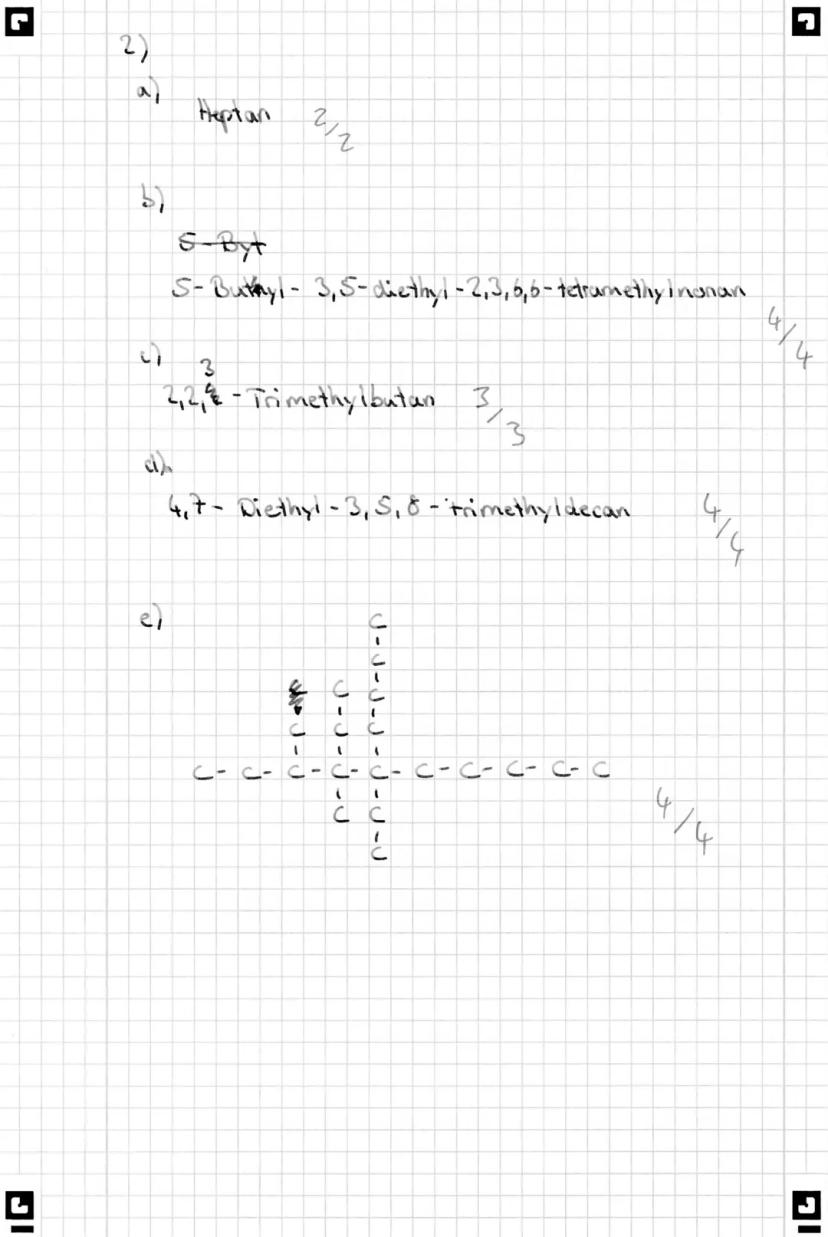 2)
a)
Heptan 2/2
b)
5-Byt
5-Buthyl-3,5-diethyl-2,3,6,6-tetramethylnonan
4/4
c)
3
2,2,4-Trimethylbutan 3/3
d)
4,7-Diethyl-3,5,8-trimethyldecan 4/4
e)
C
C
C C
C C C
C-C-C-C-C-C-C-C-C-C
C C
C
4/4